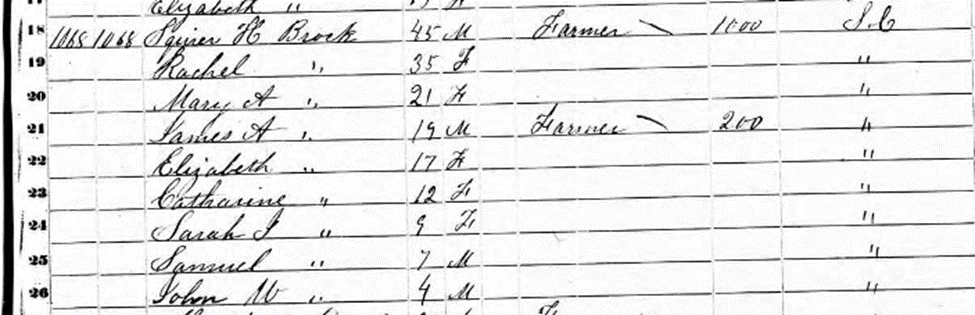 Elizabeth "
18 1068 1068 Squier H Brock 45 M Farmer 1000 S.C
19 Rachel " 35 F "
20 Mary A " 21 F "
21 James A " 19 M Farmer 200 "
22 Elizabeth " 17 F "
23 Catharine " 12 F "
24 Sarah J " 9 F "
25 Samuel " 7 M "
26 John W " 4 M "